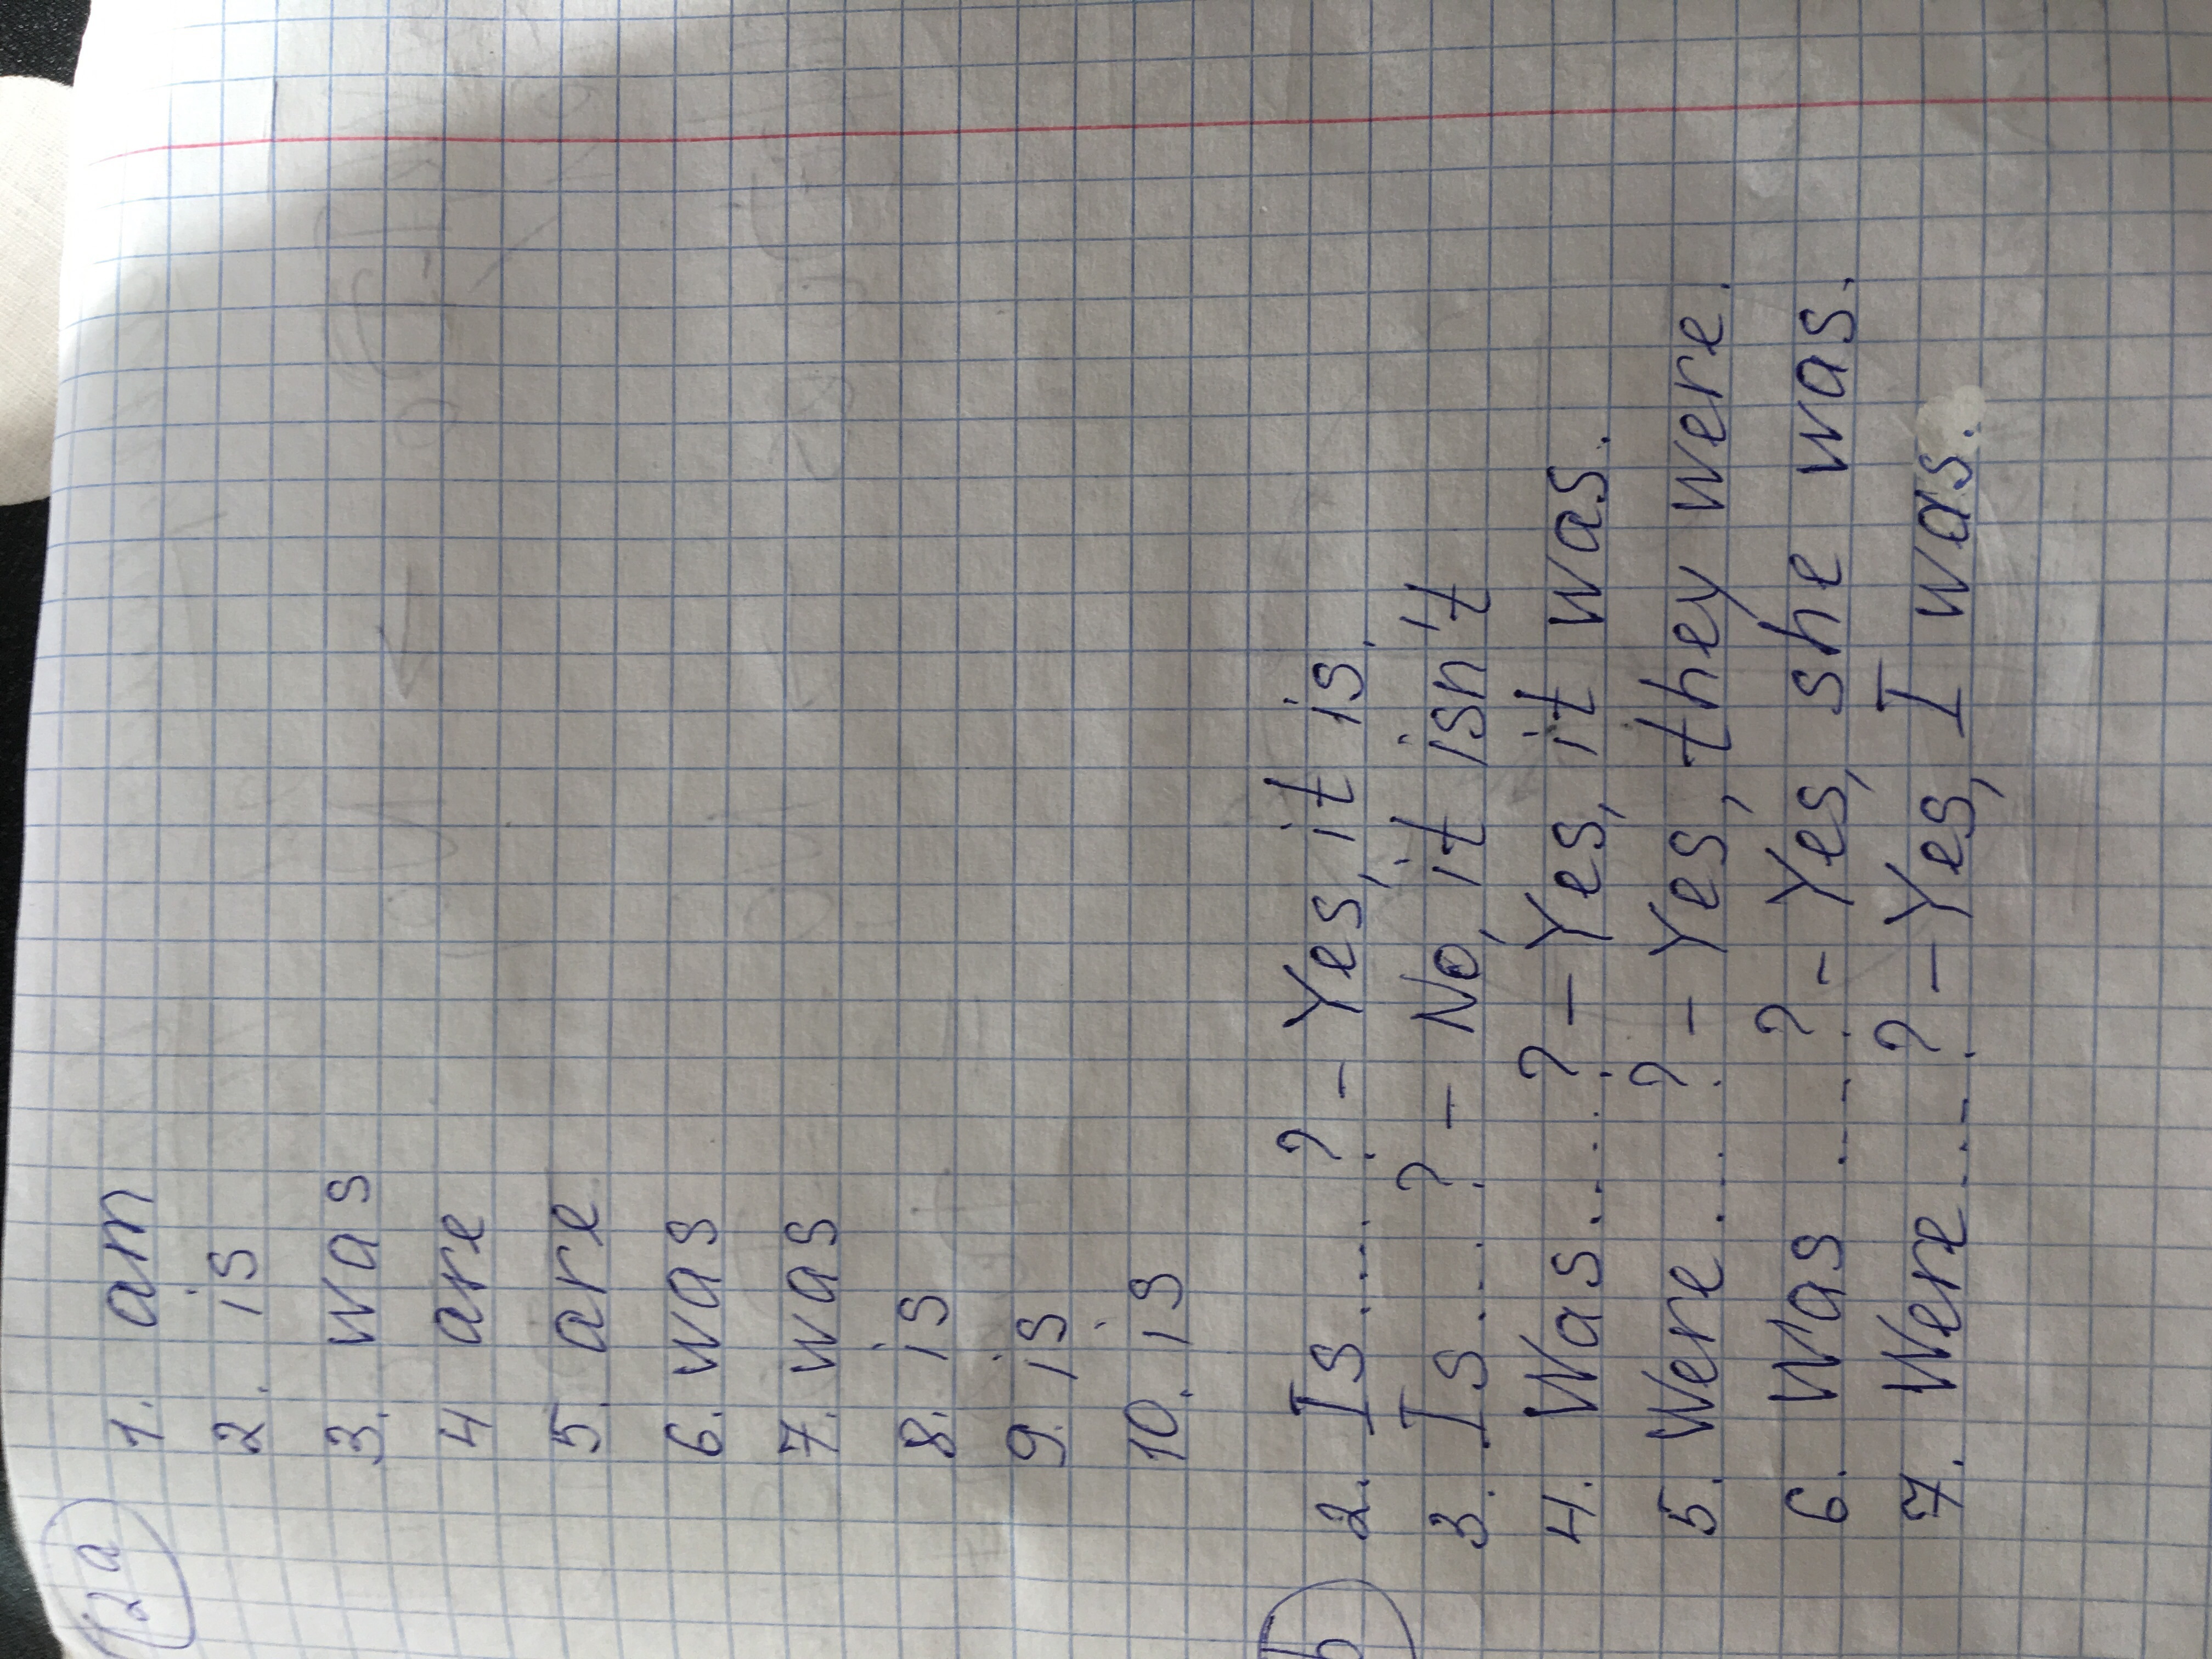 12a
1. am
2. is
3. was
4 are
5. are
6. was
7. was
8. is
9. is
10. is
b
2. Is....? - Yes, it is.
3. Is...? - No, it isn't
4. Was.....? - Yes, it was.
5. Were...? - Yes, they were.
6. Was ....? - Yes, she was.
7. Were....? - Yes, I was.